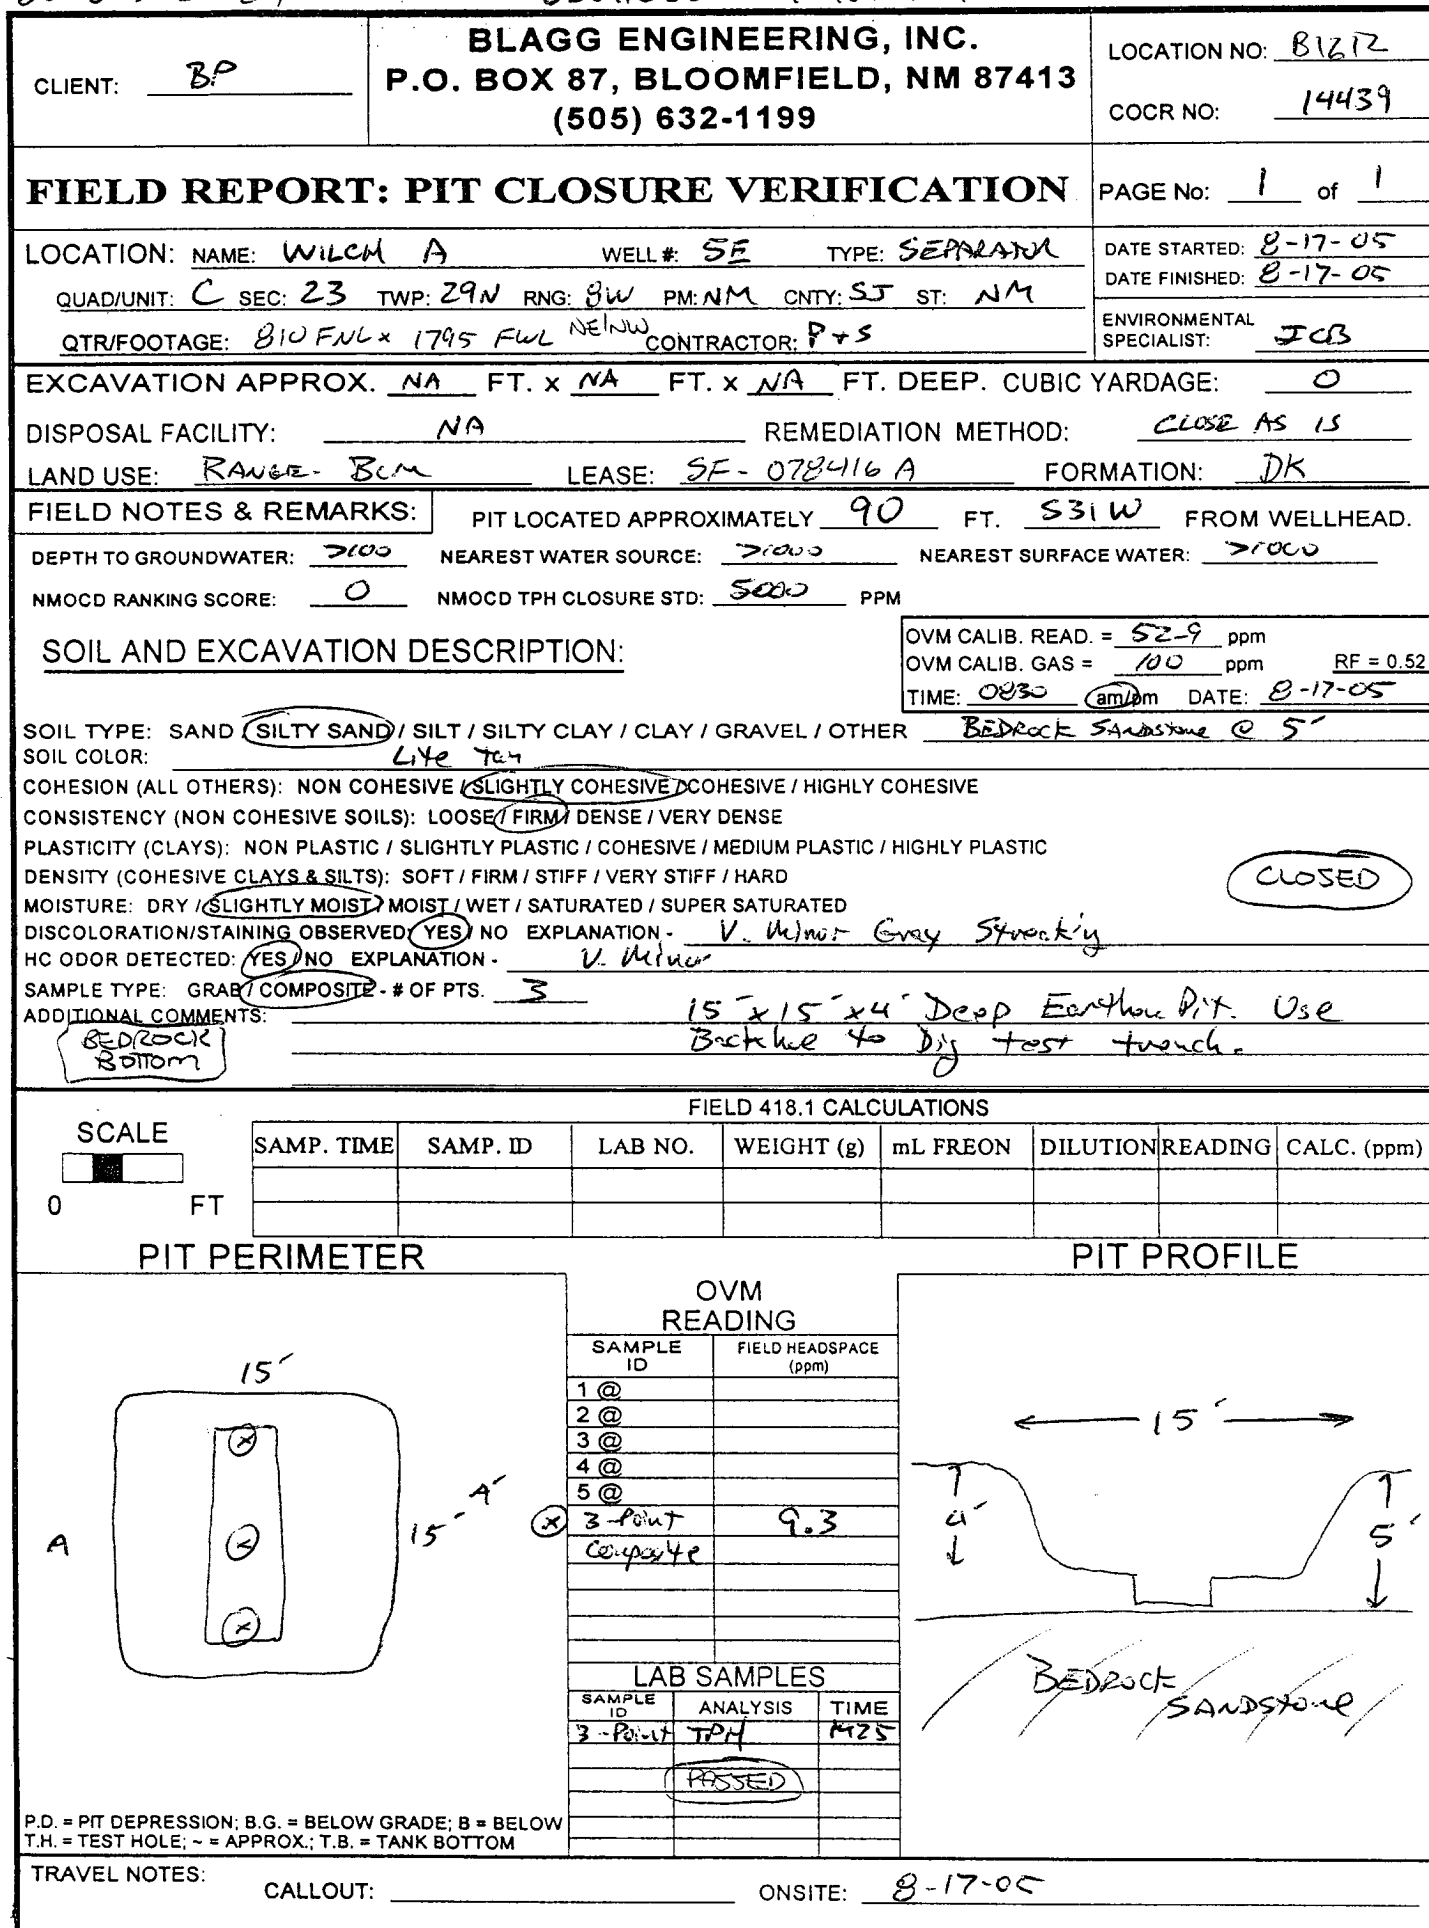 BLAGG ENGINEERING, INC.
P.O. BOX 87, BLOOMFIELD, NM 87413
(505) 632-1199
CLIENT: BP
LOCATION NO: B1212
COCR NO: 14439
FIELD REPORT: PIT CLOSURE VERIFICATION
PAGE No: 1 of 1
LOCATION: NAME: WILCH A WELL #: 5E TYPE: SEPARATOR
DATE STARTED: 8-17-05
DATE FINISHED: 8-17-05
QUAD/UNIT: C SEC: 23 TWP: 29N RNG: 8W PM: NM CNTY: SJ ST: NM
QTR/FOOTAGE: 810 FNL x 1795 FWL NE/NW CONTRACTOR: P+S
ENVIRONMENTAL
SPECIALIST: JCB
EXCAVATION APPROX. NA FT. x NA FT. x NA FT. DEEP. CUBIC YARDAGE: 0
DISPOSAL FACILITY: NA REMEDIATION METHOD: CLOSE AS IS
LAND USE: RANGE - BLM LEASE: SF-078416 A FORMATION: DK
FIELD NOTES & REMARKS: PIT LOCATED APPROXIMATELY 90 FT. S31W FROM WELLHEAD.
DEPTH TO GROUNDWATER: >100 NEAREST WATER SOURCE: >1000 NEAREST SURFACE WATER: >1000
NMOCD RANKING SCORE: 0 NMOCD TPH CLOSURE STD: 5000 PPM
SOIL AND EXCAVATION DESCRIPTION:
OVM CALIB. READ. = 52.9 ppm
OVM CALIB. GAS = 100 ppm RF = 0.52
TIME: 0830 am/pm DATE: 8-17-05
SOIL TYPE: SAND / SILTY SAND / SILT / SILTY CLAY / CLAY / GRAVEL / OTHER BEDROCK SANDSTONE @ 5'
SOIL COLOR: Lite Tan
COHESION (ALL OTHERS): NON COHESIVE / SLIGHTLY COHESIVE / COHESIVE / HIGHLY COHESIVE
CONSISTENCY (NON COHESIVE SOILS): LOOSE / FIRM / DENSE / VERY DENSE
PLASTICITY (CLAYS): NON PLASTIC / SLIGHTLY PLASTIC / COHESIVE / MEDIUM PLASTIC / HIGHLY PLASTIC
DENSITY (COHESIVE CLAYS & SILTS): SOFT / FIRM / STIFF / VERY STIFF / HARD
CLOSED
MOISTURE: DRY / SLIGHTLY MOIST / MOIST / WET / SATURATED / SUPER SATURATED
DISCOLORATION/STAINING OBSERVED: YES / NO EXPLANATION - V. Minor Gray Streaking
HC ODOR DETECTED: YES / NO EXPLANATION - V. Minor
SAMPLE TYPE: GRAB / COMPOSITE - # OF PTS. 3
ADDITIONAL COMMENTS: 15' x 15' x 4' Deep Earthen Pit. Use
Backhoe to Dig test trench.
BEDROCK
BOTTOM
FIELD 418.1 CALCULATIONS
SCALE
0 FT
SAMP. TIME SAMP. ID LAB NO. WEIGHT (g) mL FREON DILUTION READING CALC. (ppm)
PIT PERIMETER
15'
A
15'
A'
OVM
READING
SAMPLE ID FIELD HEADSPACE (ppm)
1 @
2 @
3 @
4 @
5 @
3-Point 9.3
Composite
LAB SAMPLES
SAMPLE ID ANALYSIS TIME
3-Point TPH 1425
PASSED
PIT PROFILE
15'
4'
5'
BEDROCK
SANDSTONE
P.D. = PIT DEPRESSION; B.G. = BELOW GRADE; B = BELOW
T.H. = TEST HOLE; ~ = APPROX.; T.B. = TANK BOTTOM
TRAVEL NOTES:
CALLOUT: ONSITE: 8-17-05